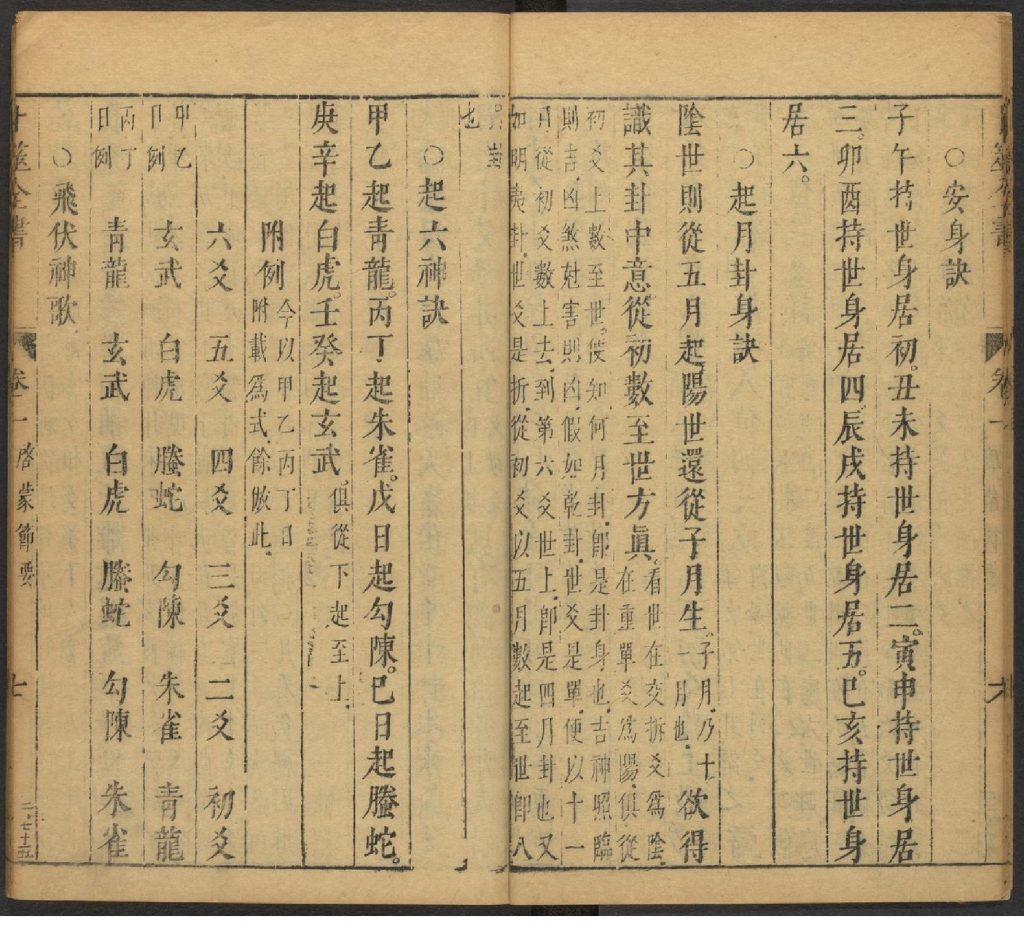 卷一
六
○安身訣
子午持世身居初。丑未持世身居二。寅申持世身居
三。卯酉持世身居四。辰戌持世身居五。巳亥持世身
居六。
○起月卦身訣
陰世則從五月起。陽世還從子月生。子月。乃十一月也。欲得
識其卦中意。從初數至世方眞。看世在交拆爻爲陰。在重單爻爲陽。俱從
初爻上數至世。便知何月卦。卽是卦身也。吉神照臨
則吉。凶煞尅害則凶。假如乾卦。世爻是單。便以十一
月。從初爻數上去。到第六爻世上。卽是四月卦也。又
如明夷卦。世爻是拆。從初爻以五月數起。至世卽八
月卦
也
○起六神訣
甲乙起青龍。丙丁起朱雀。戊日起勾陳。巳日起螣蛇。
庚辛起白虎。壬癸起玄武。俱從下起至上。
附例 今以甲乙丙丁日附載爲式。餘倣此。
六爻 五爻 四爻 三爻 二爻 初爻
甲乙日例 玄武 白虎 螣蛇 勾陳 朱雀 青龍
丙丁日例 青龍 玄武 白虎 螣蛇 勾陳 朱雀
○飛伏神歌
卜筮全書 卷一 啓蒙節要 七 二七十五